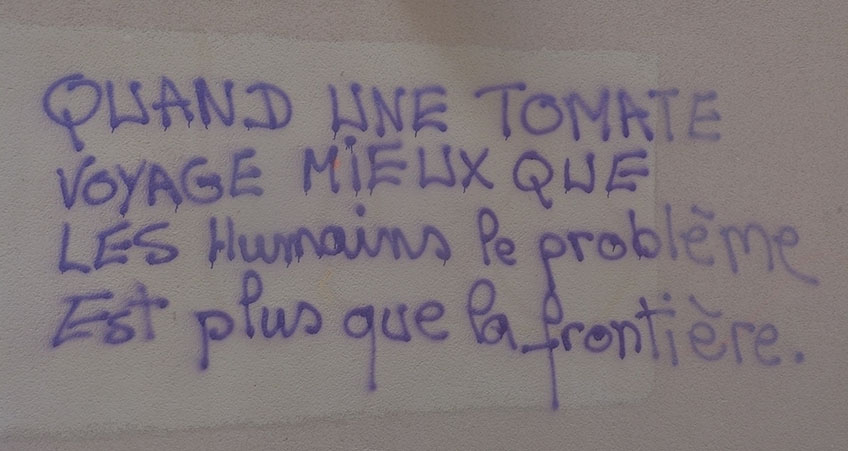 QUAND UNE TOMATE
VOYAGE MiEUX QUE
LES Humains le problème
Est plus que la frontière.